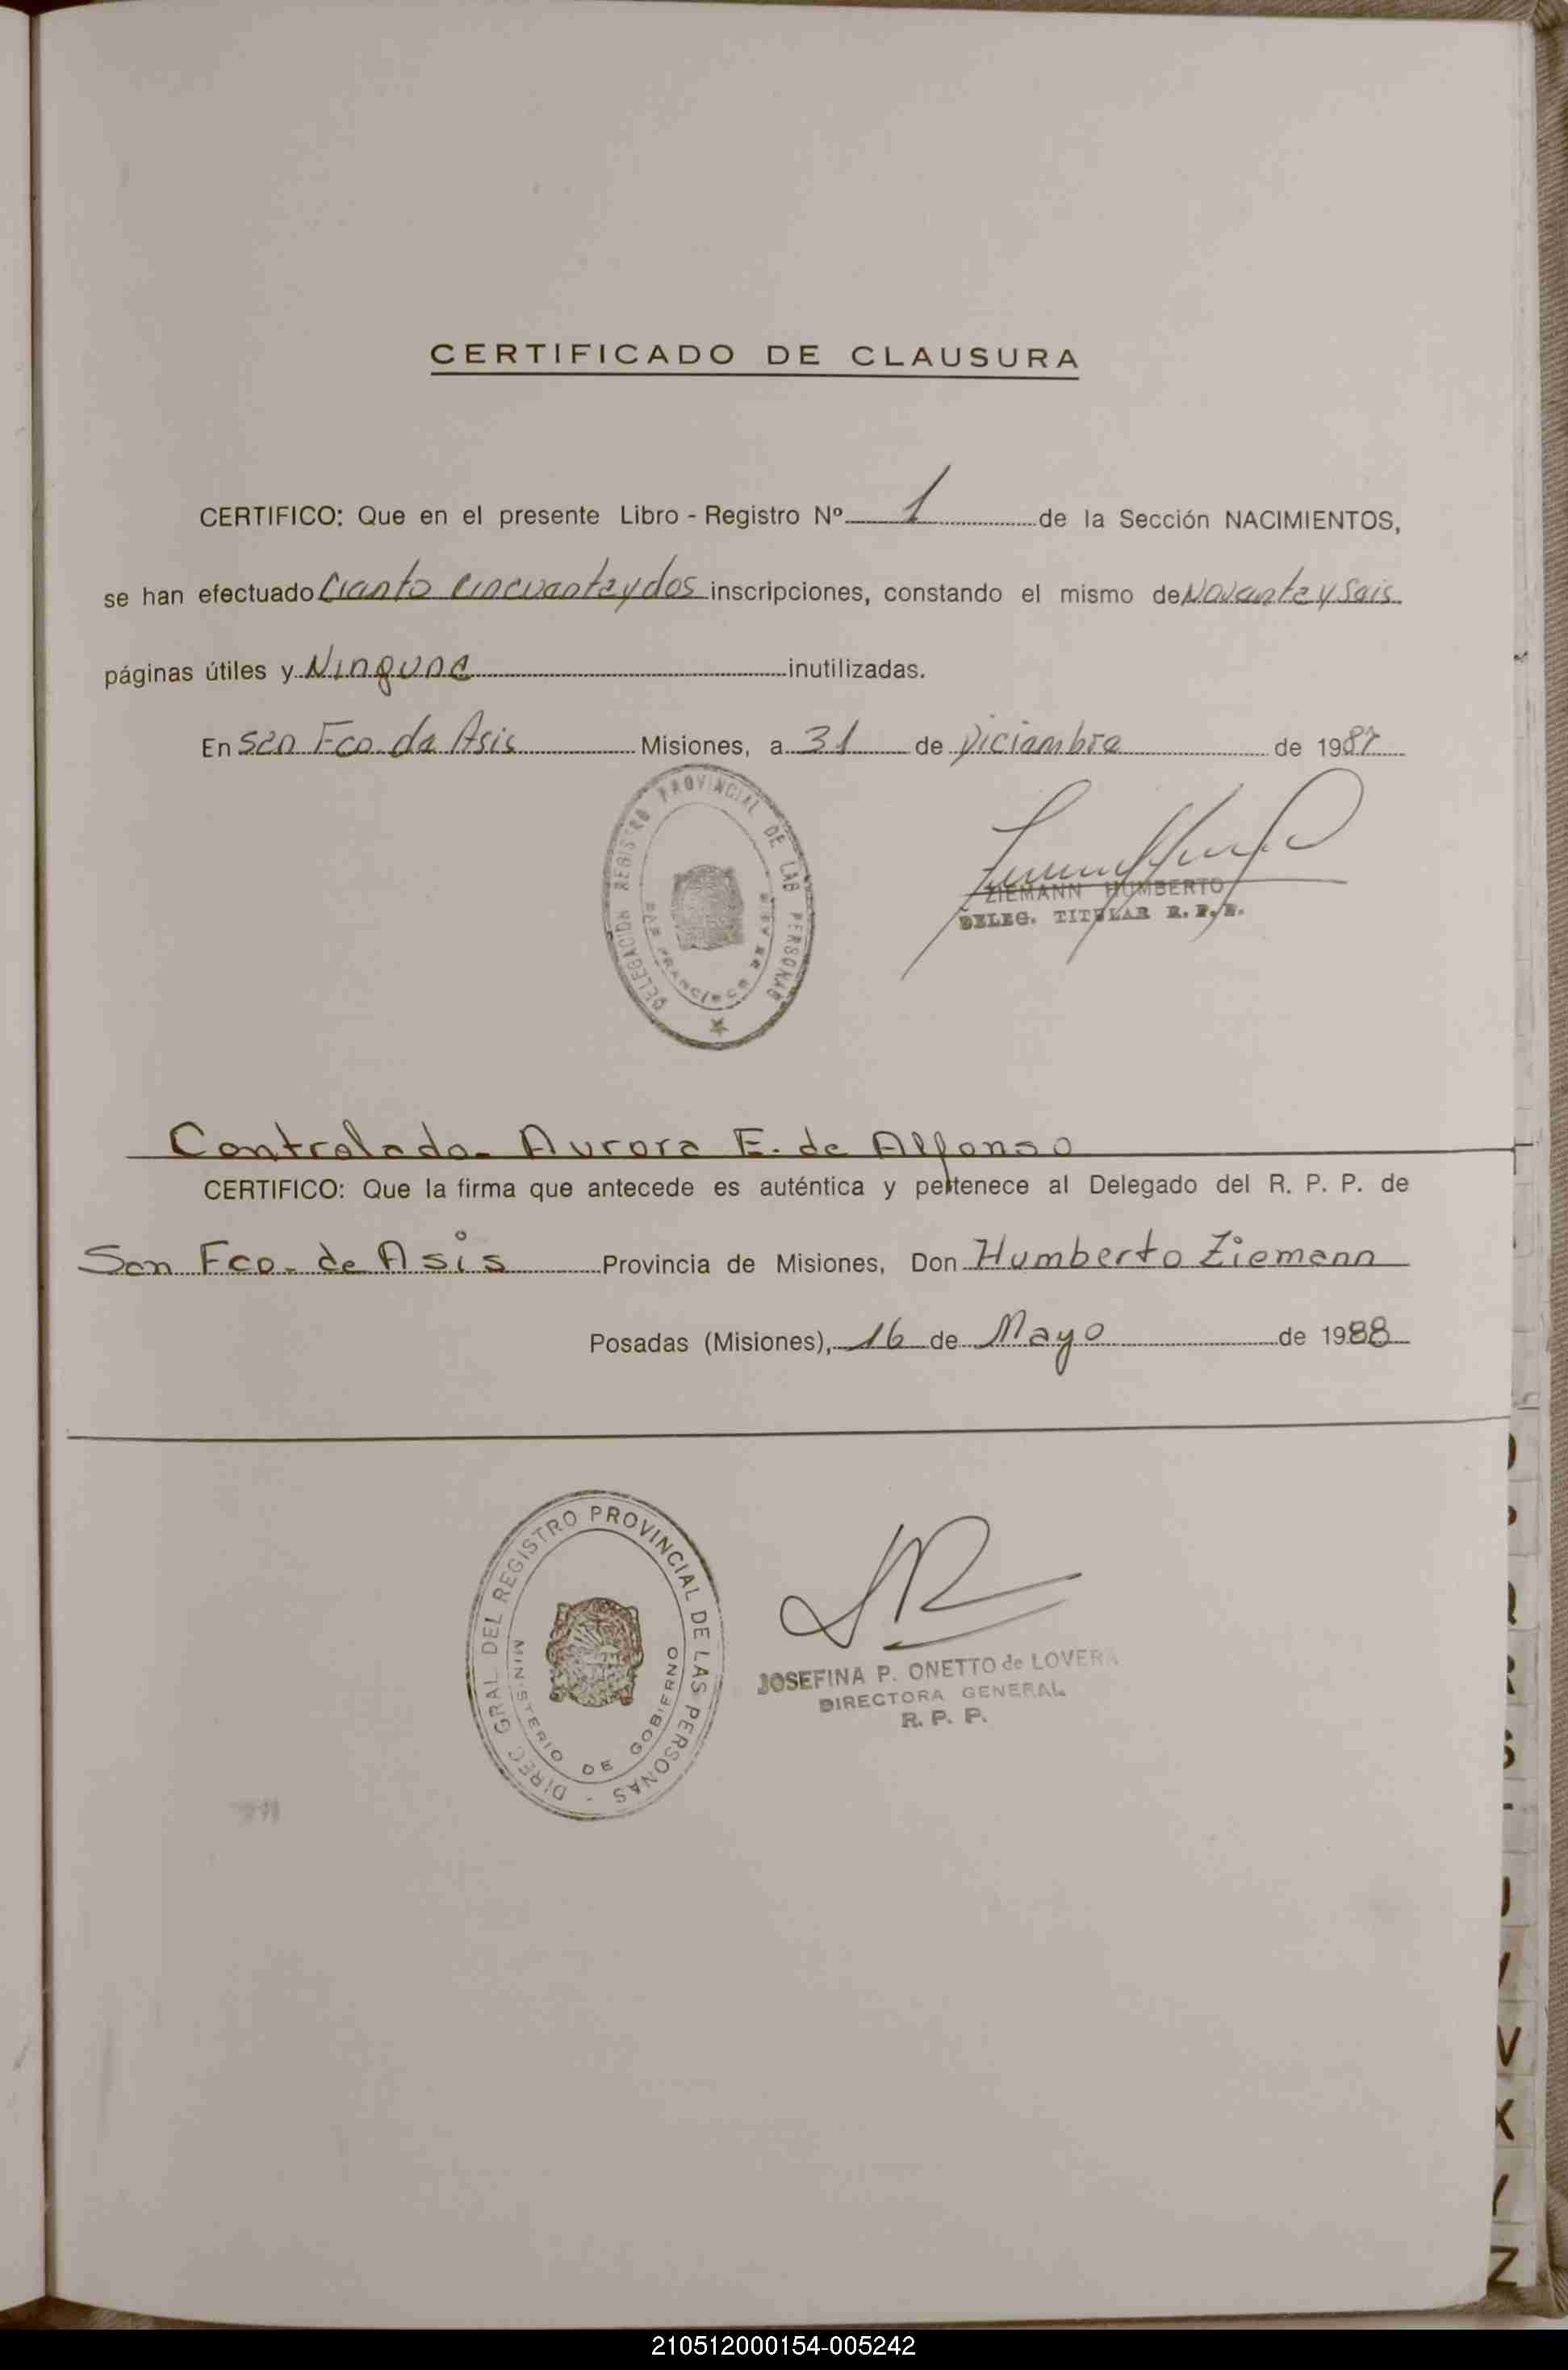 CERTIFICADO DE CLAUSURA
CERTIFICO: Que en el presente Libro - Registro Nº 1 de la Sección NACIMIENTOS,
se han efectuado Ciento cincuenta y dos inscripciones, constando el mismo de Noventa y Seis
páginas útiles y Ninguna inutilizadas.
En San Fco de Asis Misiones, a 31 de Diciembre de 1987
DELEGACION REGISTRO PROVINCIAL DE LAS PERSONAS
FRANCISCO DE ASIS
ZIEMANN HUMBERTO
DELEG. TITULAR R. P. P.
Controlado - Aurora E. de Alfonso
CERTIFICO: Que la firma que antecede es auténtica y pertenece al Delegado del R. P. P. de
San Fco. de Asis Provincia de Misiones, Don Humberto Ziemann
Posadas (Misiones), 16 de Mayo de 1988
DIREC GRAL. DEL REGISTRO PROVINCIAL DE LAS PERSONAS -
MINISTERIO DE GOBIERNO
JOSEFINA P. ONETTO de LOVERA
DIRECTORA GENERAL
R. P. P.
S
V
X
Y
Z
210512000154-005242